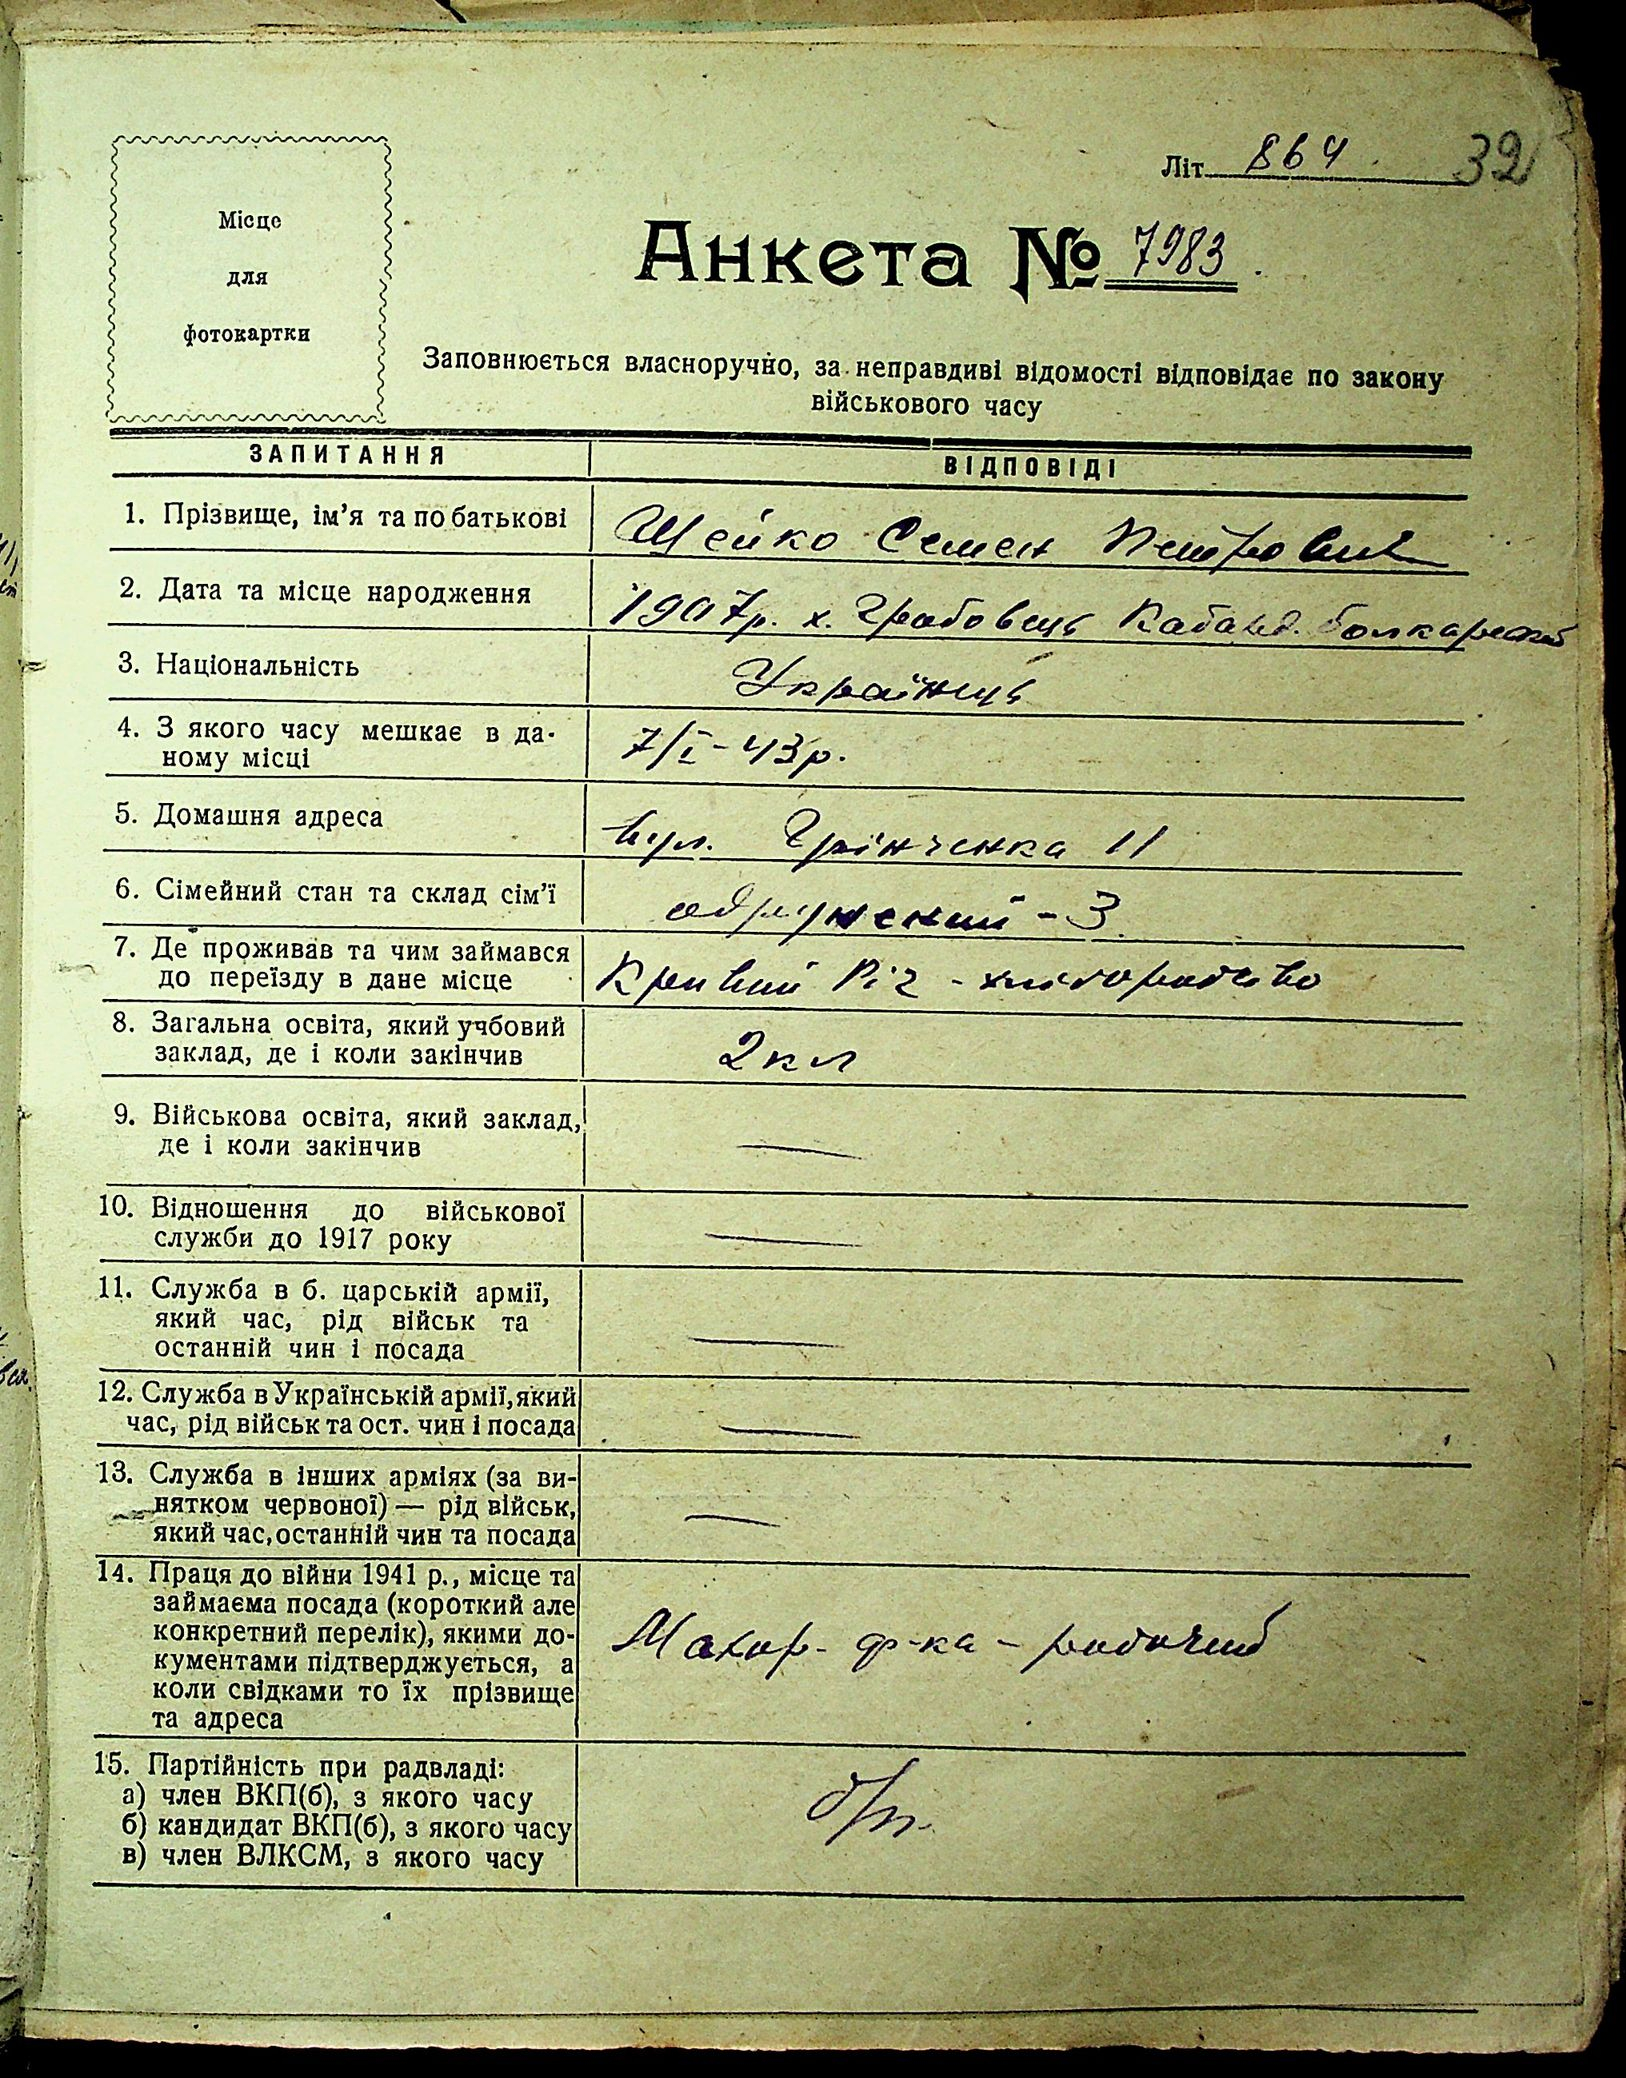 Літ 864 32
Місце
для
фотокартки
Анкета № 7983
Заповнюється власноручно, за неправдиві відомості відповідає по закону
військового часу
ЗАПИТАННЯ ВІДПОВІДІ
1. Прізвище, ім'я та по батькові Шейко Семен Петрович
2. Дата та місце народження 1907р. х. Грабовець Кабард. Болкарской
3. Національність Українець
4. З якого часу мешкає в да- 7/I-43р.
ному місці
5. Домашня адреса вул. Грінченка 11
6. Сімейний стан та склад сім'ї одружений - 3
7. Де проживав та чим займався
до переїзду в дане місце Кривий Ріг - хліборобство
8. Загальна освіта, який учбовий
заклад, де і коли закінчив 2кл
9. Військова освіта, який заклад,
де і коли закінчив —
10. Відношення до військової
служби до 1917 року —
11. Служба в б. царській армії,
який час, рід військ та
останній чин і посада —
12. Служба в Українській армії, який
час, рід військ та ост. чин і посада —
13. Служба в інших арміях (за ви-
нятком червоної) — рід військ, —
який час, останній чин та посада
14. Праця до війни 1941 р., місце та
займаєма посада (короткий але
конкретний перелік), якими до- Махор. ф-ка - рабочий
кументами підтверджується, а
коли свідками то їх прізвище
та адреса
15. Партійність при радвладі:
а) член ВКП(б), з якого часу б/п.
б) кандидат ВКП(б), з якого часу
в) член ВЛКСМ, з якого часу